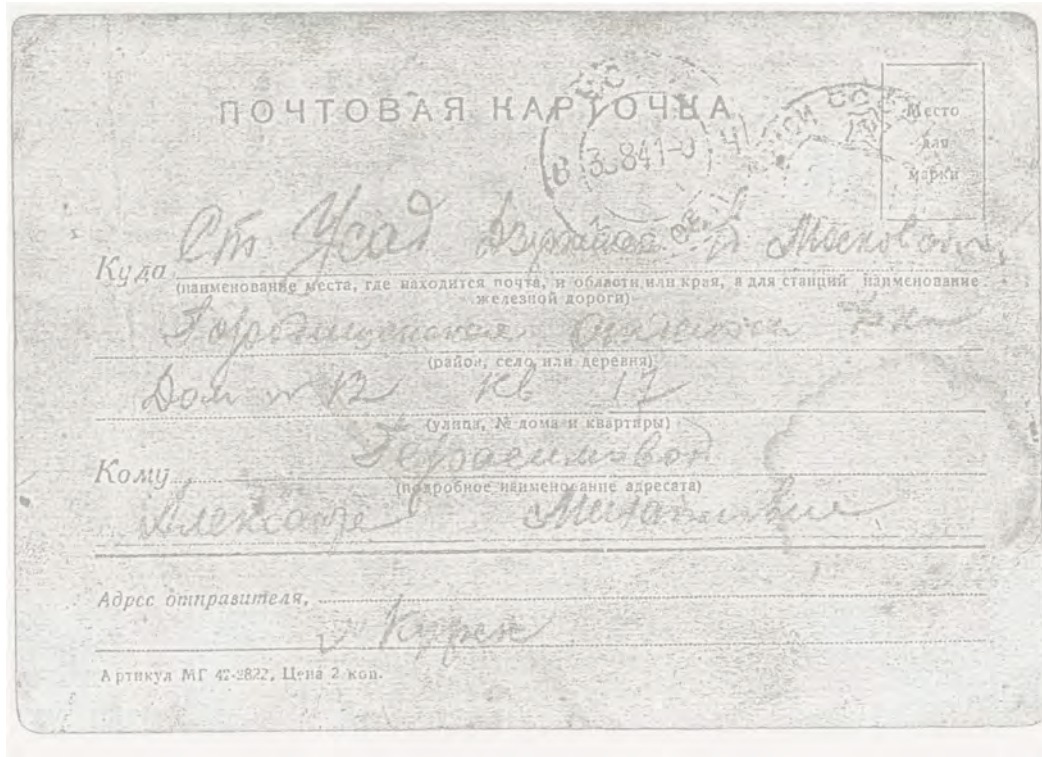 ПОЧТОВАЯ КАРТОЧКА
Место
для
марки
3.8.41
Куда Ст Усад Московской
(наименование места, где находится почта, и области или края, а для станций наименование
железной дороги)
Городищенская фабрика
(район, село или деревня)
Дом № 12 кв 17
(улица, № дома и квартиры)
Кому Герасимовой
(подробное наименование адресата)
Александре Михайловне
Адрес отправителя,
г Курск
Артикул МГ 47-2822, Цена 2 коп.